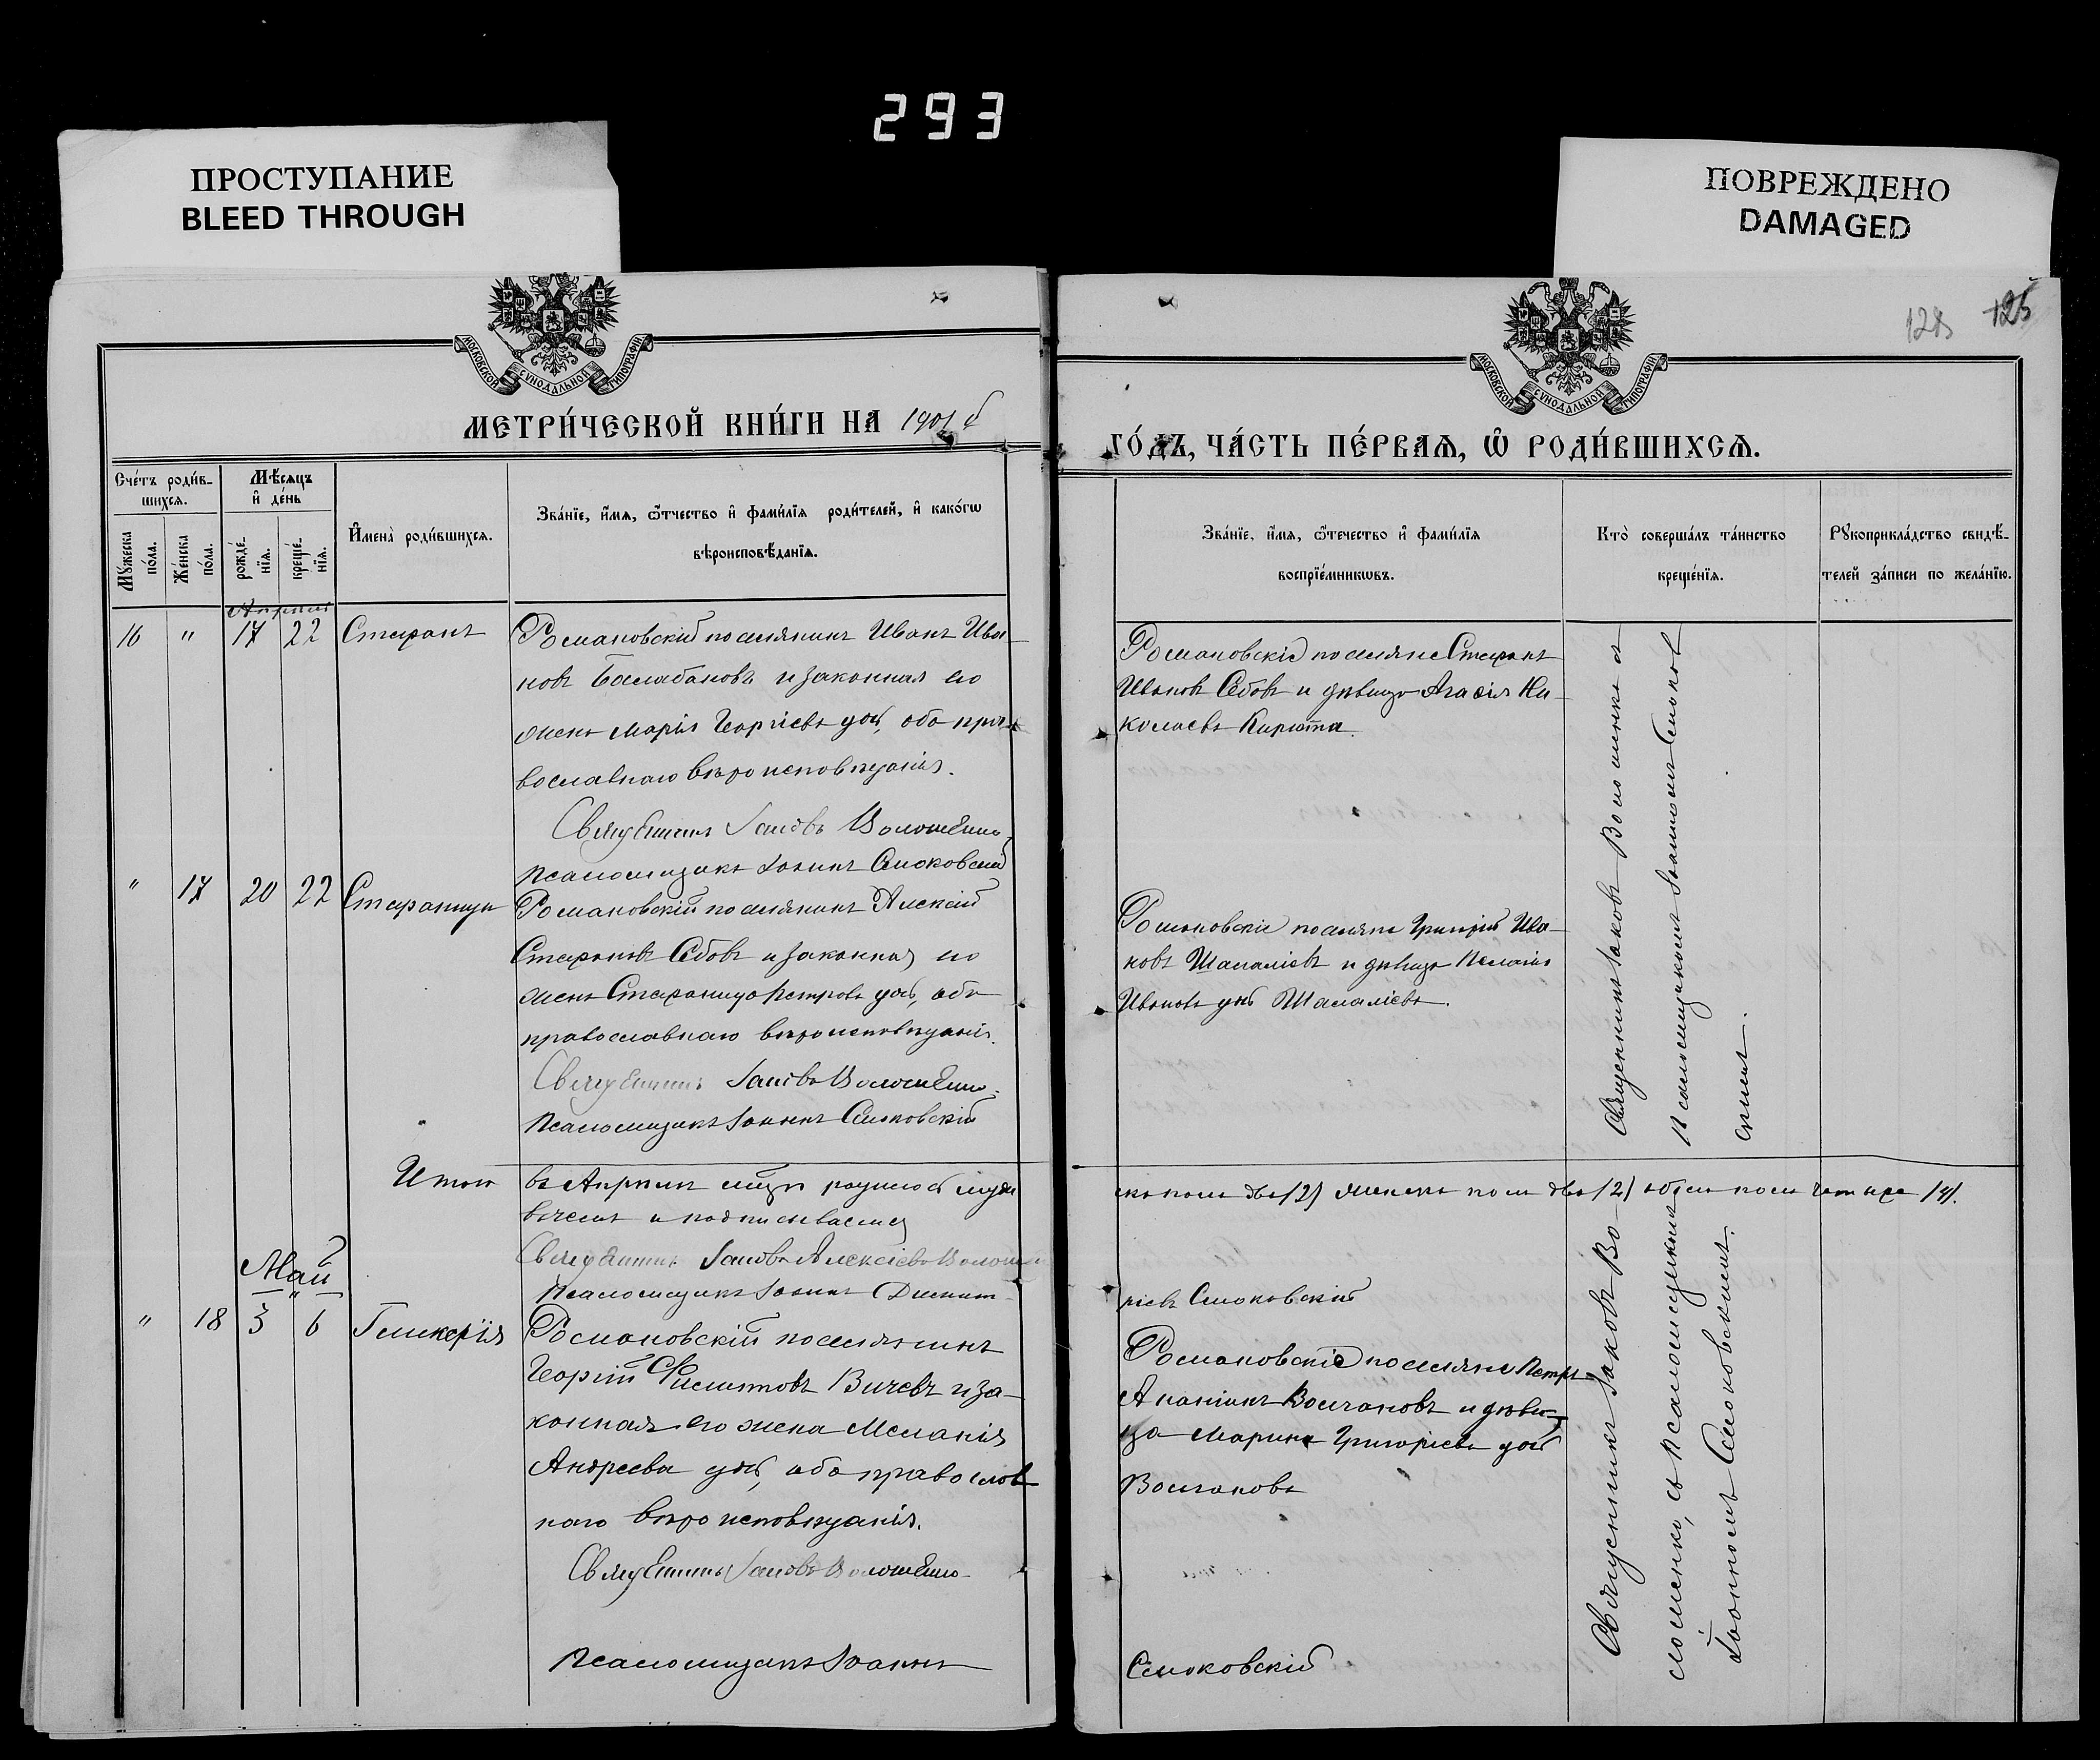 293
ПРОСТУПАНИЕ
BLEED THROUGH
ПОВРЕЖДЕНО
DAMAGED
125
МОСКОВСКОЙ СѴНОДАЛЬНОЙ ТИПОГРАФІИ
МОСКОВСКОЙ СѴНОДАЛЬНОЙ ТИПОГРАФІИ
МЕТРИ́ЧЕСКОЙ КНИ́ГИ НА 1901
ГО́ДЪ, ЧА́СТЬ ПЕ́РВАѦ, Ѡ РОДИ́ВШИХСѦ.
Сче́тъ роди́в-
шихсѧ.
Мꙋжеска по́ла.
Же́нска по́ла.
Мѣ́сѧцъ
и҆ де́нь
рожде́-
нїѧ.
креще́-
нїѧ.
И҆мена̀ роди́вшихсѧ.
Зва́нїе, и҆́мѧ, ѻ҆́тчество и҆ фами́лїѧ роди́телей, и҆ како́гѡ
вѣроисповѣ́данїѧ.
Зва́нїе, и҆́мѧ, ѻ҆те́чество и҆ фами́лїѧ
воспрїе́мникѡвъ.
Кто̀ соверша́лъ та́инство
креще́нїѧ.
Рꙋкоприкла́дство свидѣ́-
телей за́писи по жела́нїю.
Апрѣль
16 " 17 22 Стефанъ
Романовскій поселянинъ Иванъ Ива-
новъ Балабановъ и законная его
жена Марія Георгіева доч, оба пра-
вославнаго вѣроисповѣданія.
Священникъ Іаковъ Волошенко
Псаломщикъ Іоаннъ Смоковскій
Романовскіе поселяне Стефанъ
Ивановъ Сѣбовъ и дѣвица Агафія Ни-
колаева Кирята
Священникъ Іаковъ Волошенко съ
псаломщикомъ Іоанномъ Смоков
скимъ.
" 17 20 22 Стефанида
Романовскій поселянинъ Алексій
Стефановъ Сѣбовъ и законная его
жена Стефанида Петрова доч, оба
православнаго вѣроисповѣданія.
Священникъ Іаковъ Волошенко
Псаломщикъ Іоаннъ Смоковскій
Романовскіе поселяне Григорій Ива-
новъ Шамаліевъ и дѣвица Пелагія
Иванова доч Шамаліева.
Итого въ Апрѣлѣ мцѣ родилось муже
ска пола два (2) женска пола два (2) обоего пола четыре (4).
вѣчемъ и подписываемся
Священникъ Іаковъ Алексіевъ Волошен
Псаломщикъ Іоаннъ Димит-
ріевъ Смоковскій
Май
" 18 3 6 Гликерія
Романовскій поселянинъ
Георгій Филиповъ Вичевъ и за-
конная его жена Меланія
Андреева доч, оба православ
наго вѣроисповѣданія.
Священникъ Іаковъ Волошенко
Псаломщикъ Іоаннъ
Смоковскій
Романовскіе поселяне Петръ
Ананіинъ Волчановъ и дѣви-
ца Марина Григоріева доч
Волчанова
Священникъ Іаковъ Во-
лошенко, съ псаломщикомъ
Іоанномъ Смоковскимъ.